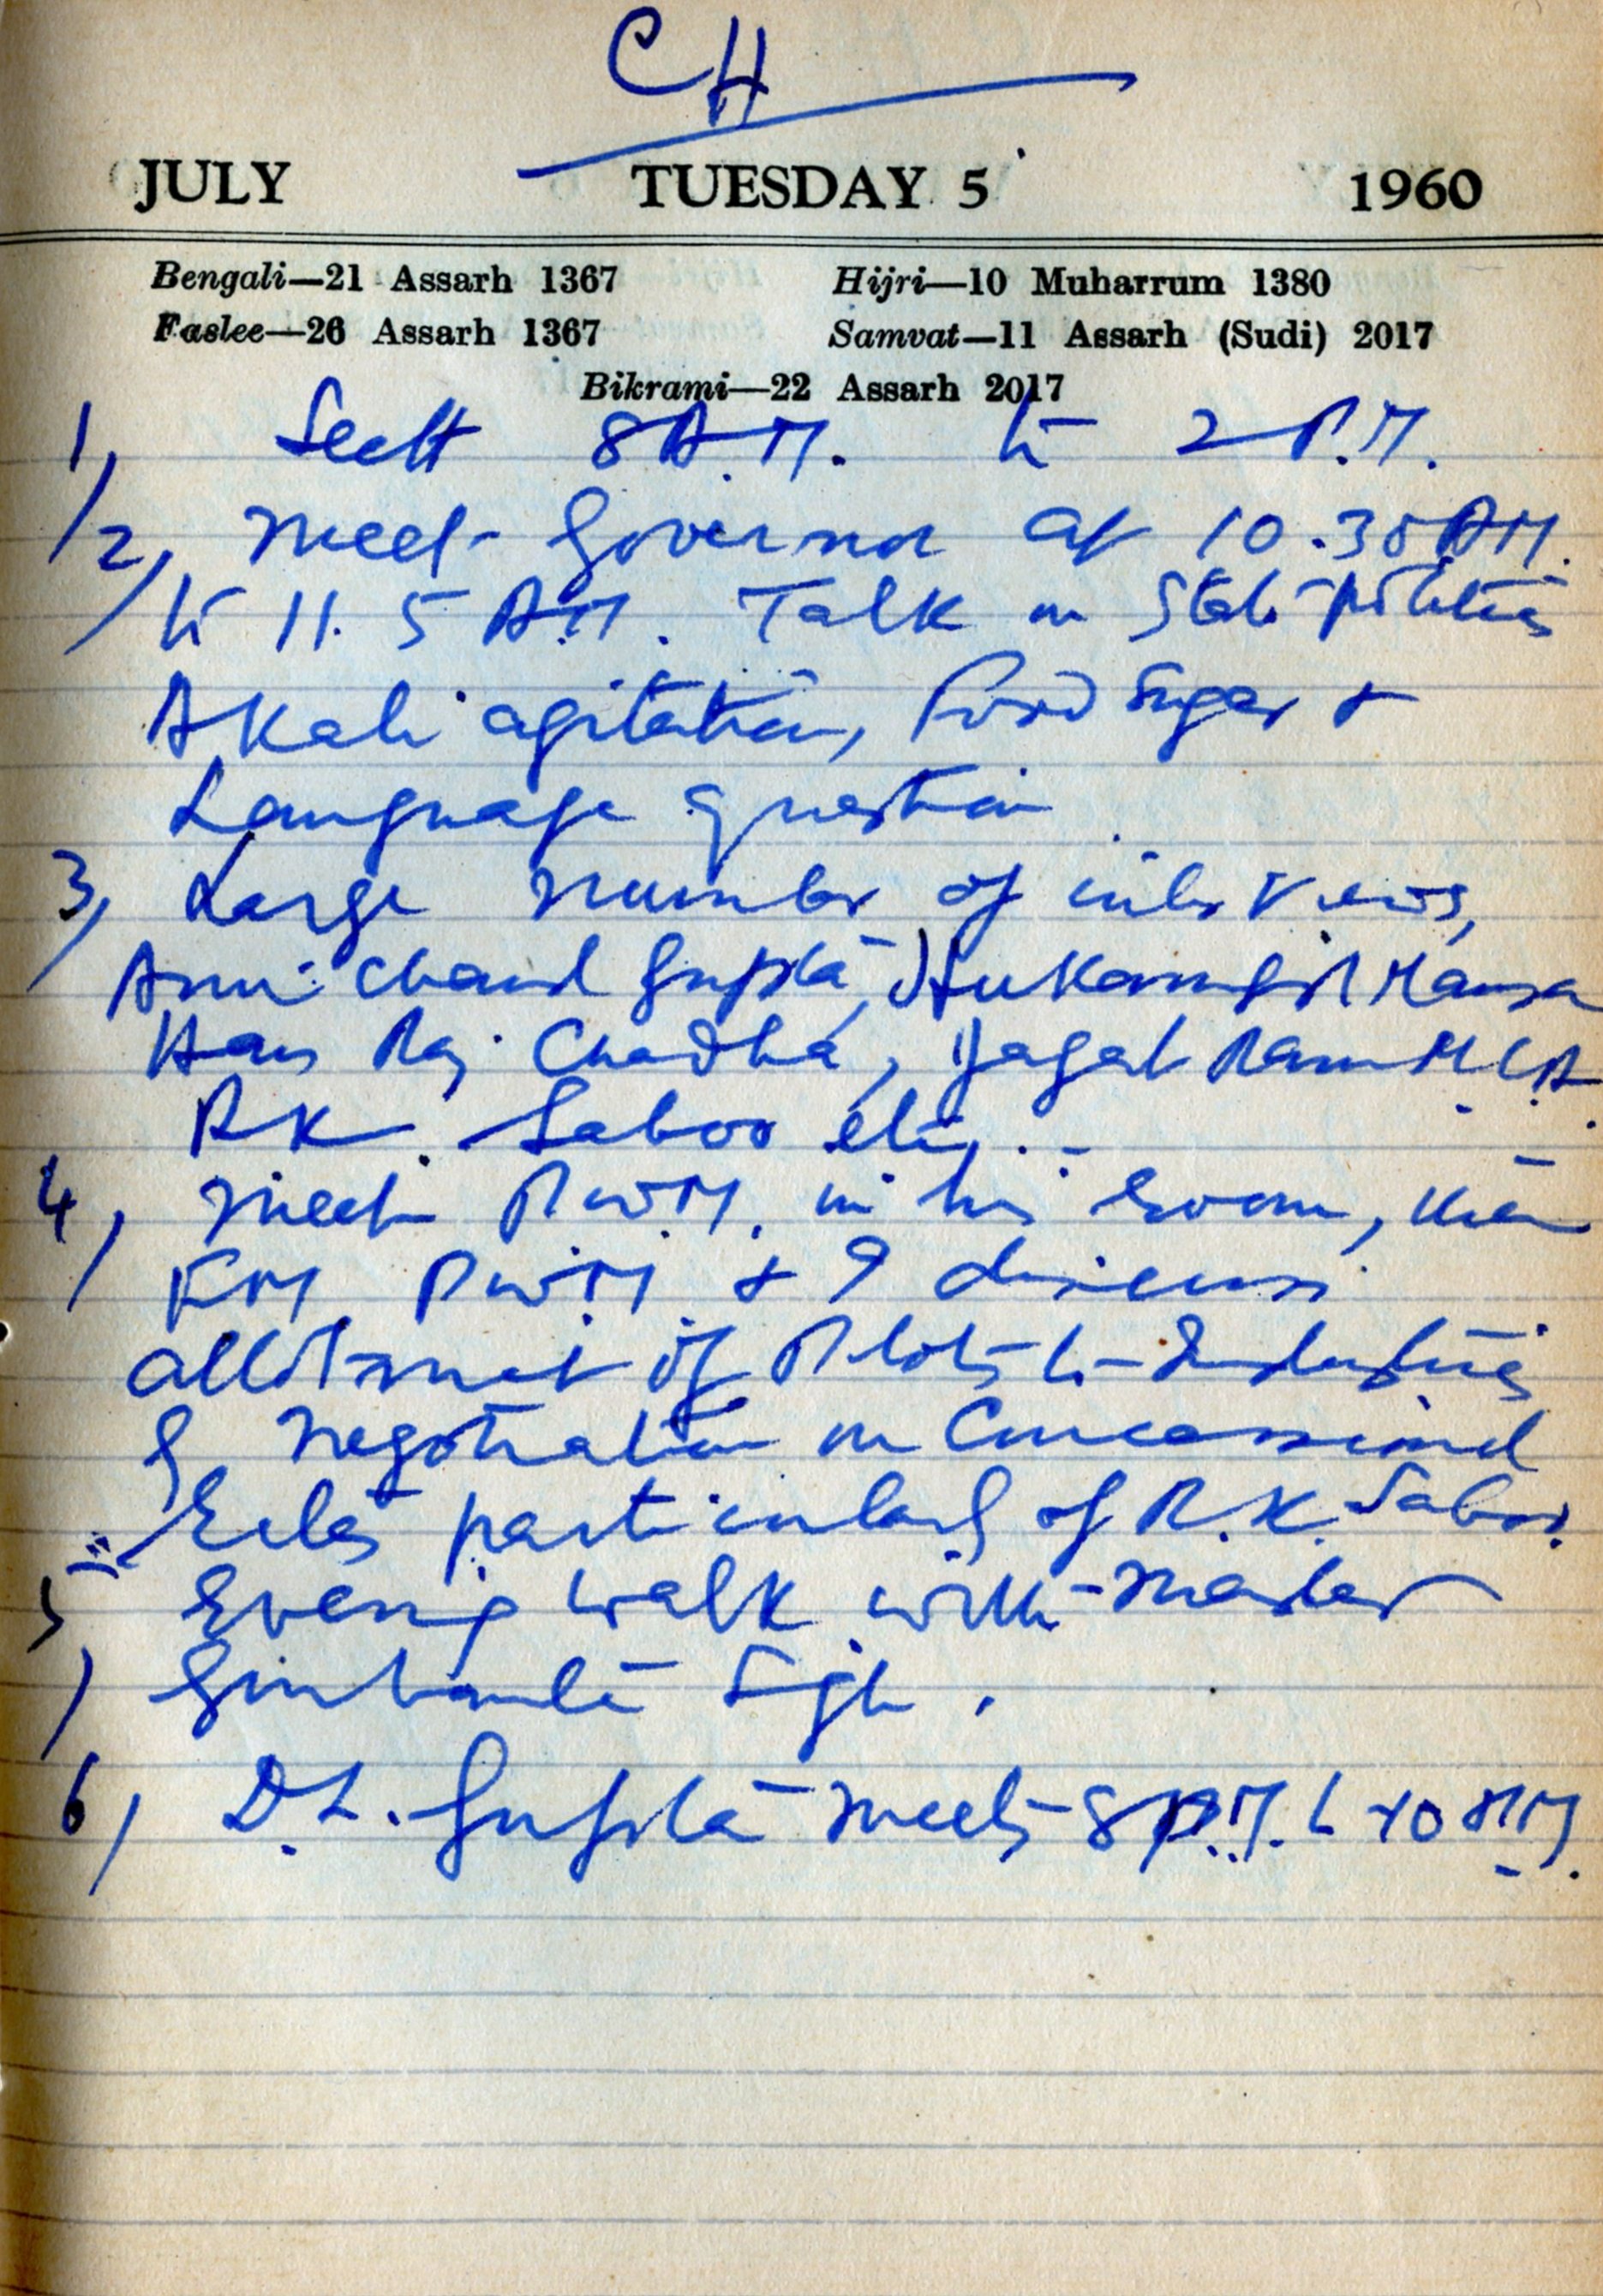 CH
JULY TUESDAY 5 1960
Bengali—21 Assarh 1367 Hijri—10 Muharrum 1380
Faslee—26 Assarh 1367 Samvat—11 Assarh (Sudi) 2017
Bikrami—22 Assarh 2017
1, Sectt 8 A.M. to 2 P.M.
2, Meet Governor at 10.30 AM.
to 11.5 A.M. Talk on State politics
Akali agitation, Food Sugar &
Language question
3, Large number of interviews,
Ami Chand Gupta, Hukam Mansa
Hans Raj Chadha, Jagat Ram M.L.A.
R.K. Saboo etc.
4, Meet P.W.M. in his room, then
FM P.W.M & I discuss
allotment of Plots to Industries
& negotiation on Concessional
Rates particularly of R.K. Saboo.
5, Evening walk with Master
Gurbanta Singh.
6, D.L. Gupta meets 8 P.M. to 10 P.M.